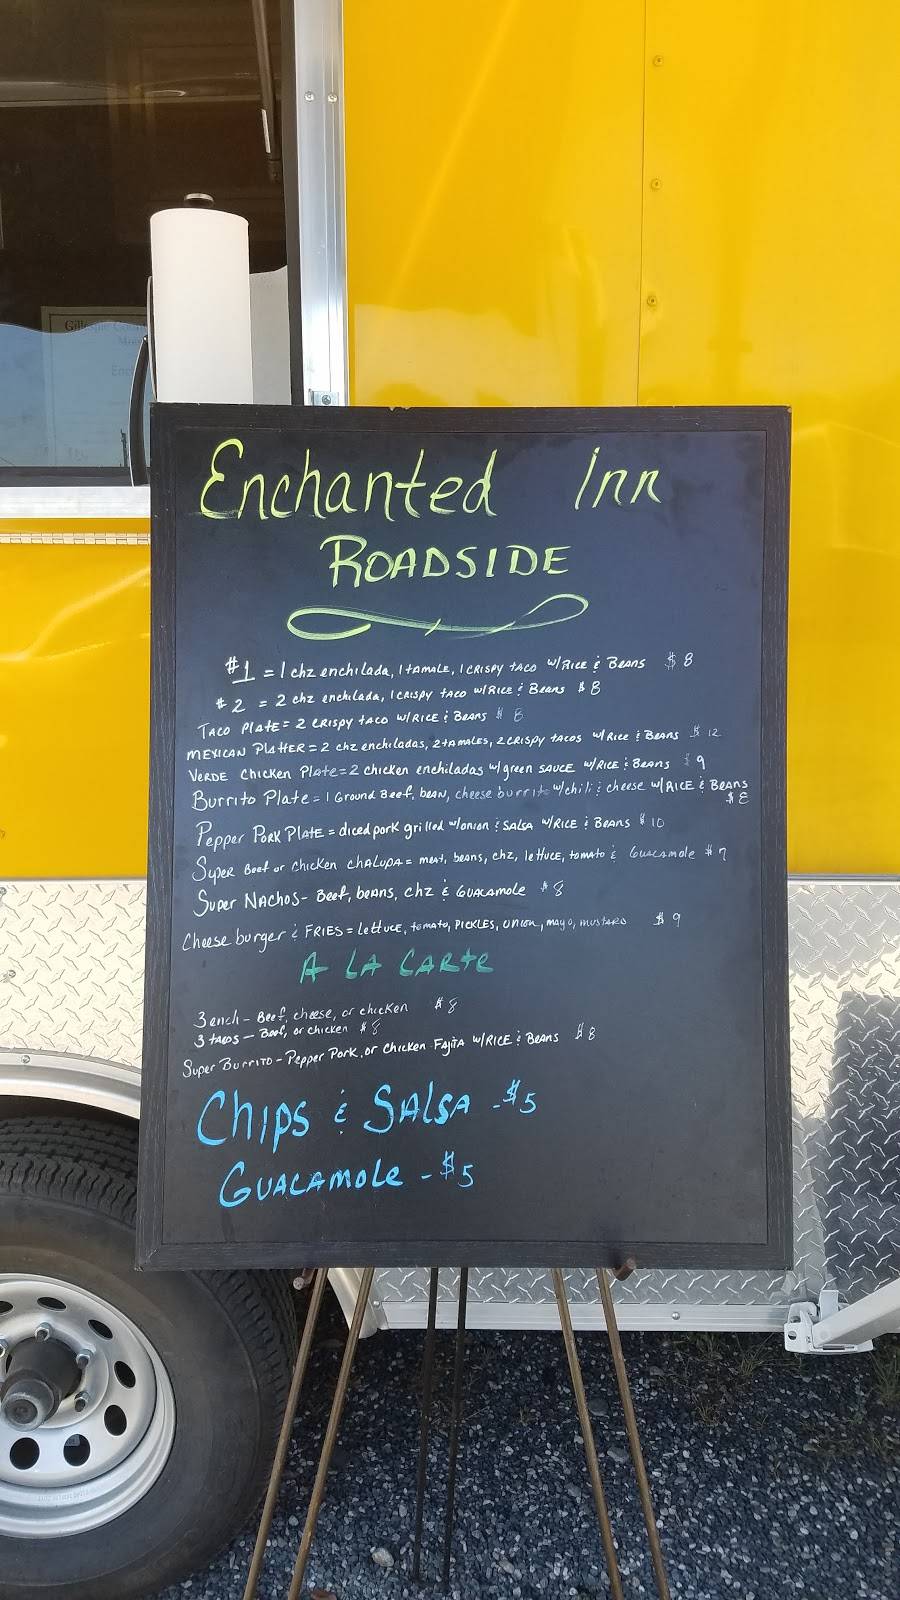 Gillespie Coun
Enchanted Inn
ROADSIDE
#1 = 1 chz enchilada, 1 tamale, 1 crispy taco w/Rice & Beans $8
#2 = 2 chz enchilada, 1 crispy taco w/Rice & Beans $8
Taco Plate = 2 crispy taco w/Rice & Beans $8
Mexican Platter = 2 chz enchiladas, 2 tamales, 2 crispy tacos w/Rice & Beans $12
Verde Chicken Plate = 2 chicken enchiladas w/green sauce w/Rice & Beans $9
Burrito Plate = 1 Ground Beef, bean, cheese burrito w/chili & cheese w/Rice & Beans
$8
Pepper Pork Plate = diced pork grilled w/onion & salsa w/Rice & Beans $10
Super Beef or Chicken Chalupa = meat, beans, chz, lettuce, tomato & Guacamole $7
Super Nachos - Beef, beans, chz & Guacamole $8
Cheese burger & Fries = lettuce, tomato, pickles, onion, mayo, mustard $9
A LA CARTE
3 ench - Beef, cheese, or chicken $8
3 tacos - Beef, or chicken $8
Super Burrito - Pepper Pork, or Chicken Fajita w/Rice & Beans $8
Chips & Salsa - $5
Guacamole - $5